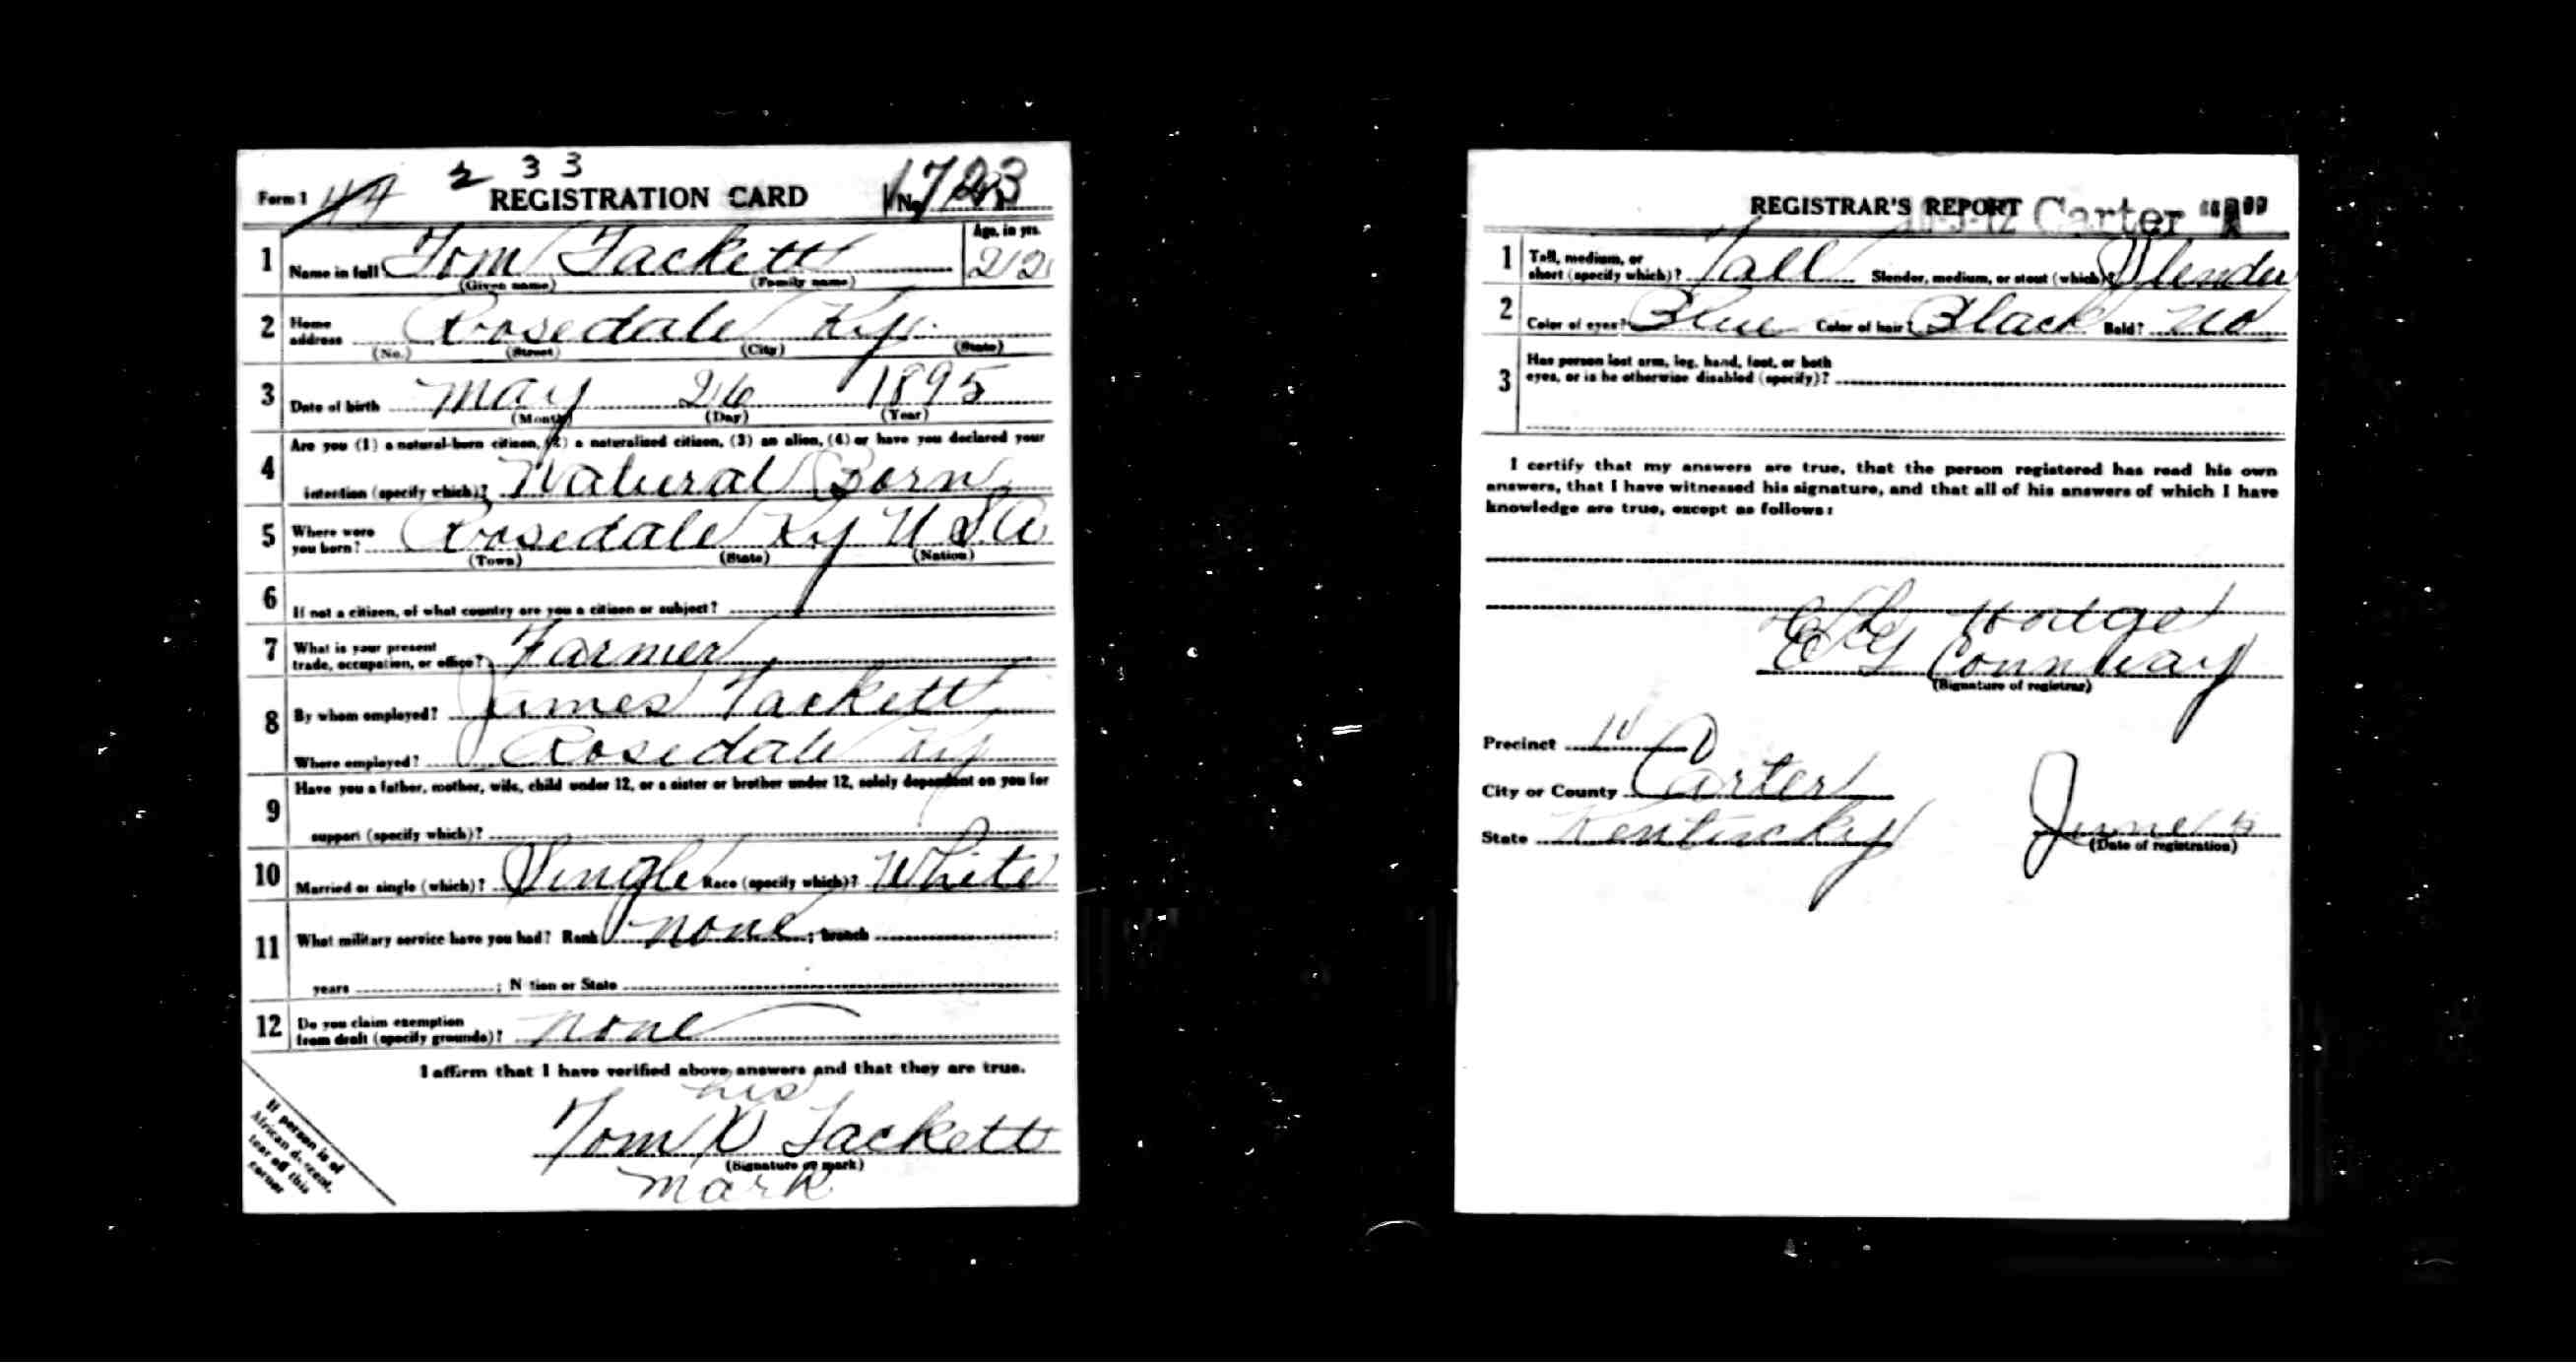 2 33
Form 1 44 REGISTRATION CARD No. 1723
1 Name in full Tom Tackett Age, in yrs. 22
(Given name) (Family name)
2 Home address Rosedale Ky.
(No.) (Street) (City) (State)
3 Date of birth May 26 1895
(Month) (Day) (Year)
4 Are you (1) a natural-born citizen, (2) a naturalized citizen, (3) an alien, (4) or have you declared your
intention (specify which)? Natural Born
5 Where were you born? Rosedale Ky U S A
(Town) (State) (Nation)
6 If not a citizen, of what country are you a citizen or subject?
7 What is your present trade, occupation, or office? Farmer
8 By whom employed? James Tackett
Where employed? Rosedale Ky
9 Have you a father, mother, wife, child under 12, or a sister or brother under 12, solely dependent on you for
support (specify which)?
10 Married or single (which)? Single Race (specify which)? White
11 What military service have you had? Rank none ; branch
years ; Nation or State
12 Do you claim exemption from draft (specify grounds)? none
I affirm that I have verified above answers and that they are true.
his
Tom X Tackett
(Signature or mark)
mark
If person is of
African descent,
tear off this
corner
REGISTRAR'S REPORT Carter
1 Tall, medium, or short (specify which)? Tall Slender, medium, or stout (which)? Slender
2 Color of eyes? Blue Color of hair? Black Bald? no
3 Has person lost arm, leg, hand, foot, or both
eyes, or is he otherwise disabled (specify)?
I certify that my answers are true, that the person registered has read his own
answers, that I have witnessed his signature, and that all of his answers of which I have
knowledge are true, except as follows:
Hodge
E G Connway
(Signature of registrar)
Precinct
City or County Carter
State Kentucky June 5
(Date of registration)